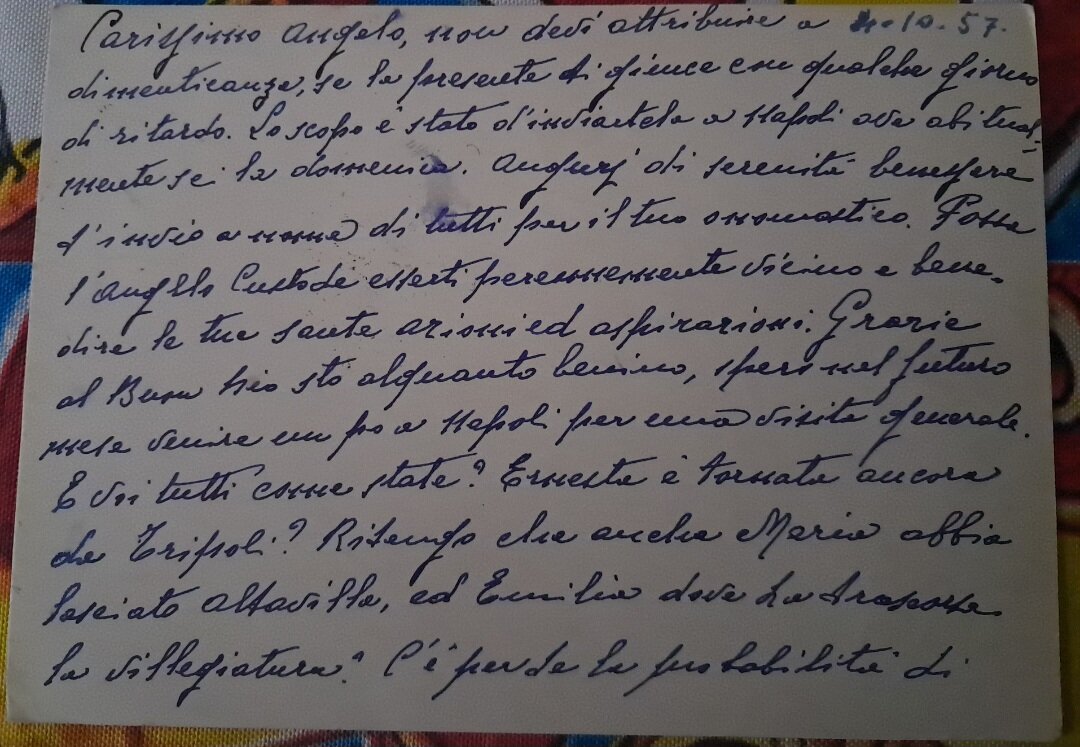 Carissimo Angelo, non devi attribuire a 4.10.57.
dimenticanza, se la presente ti giunce con qualche giorno
di ritardo. Lo scopo è stato d'inviartela a Napoli ove abitual=
mente sei la domenica. Augurj di serenità benessere
t'invio a nome di tutti per il tuo onomastico. Possa
l'Angelo Custode esserti perennemente vicino e bene-
dire le tue sante azioni ed aspirazioni. Grazie
al Buon Dio sto alquanto benino, spero nel futuro
mese venire un po a Napoli per una visita generale.
E voi tutti come state? Ernesta è tornata ancora
da Tripoli? Ritengo che anche Maria abbia
lasciato Altavilla, ed Emilia dove ha trascorsa
la villegiatura? C'è per te la probabilità di